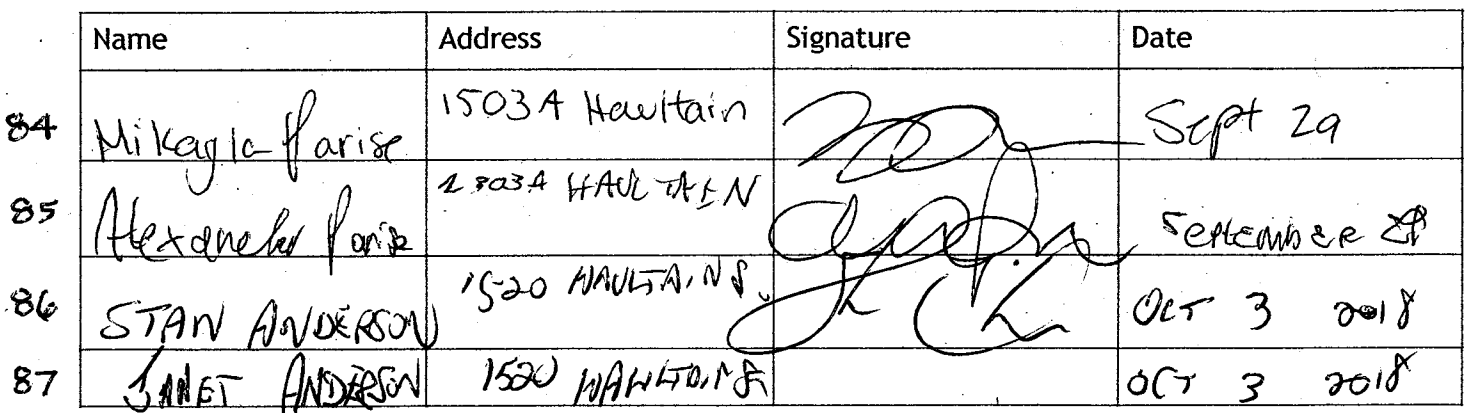 Name Address Signature Date
84 Mikayla Parise 1503A Haultain Sept 29
85 Alexander Parise 1303A HAULTAIN SEPTEMBER 29
86 STAN ANDERSON 1520 HAULTAIN S. OCT 3 2018
87 JANET ANDERSON 1520 HAULTAIN S. OCT 3 2018